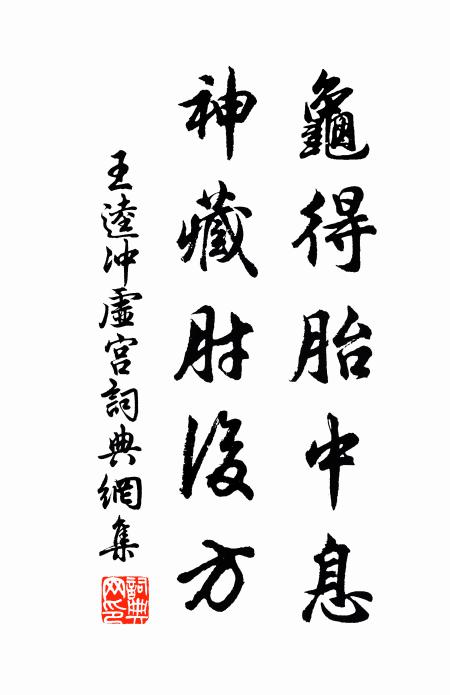 龜得胎中息
神藏肘後方
王逵沖虛宮詞典網集
詞典網印